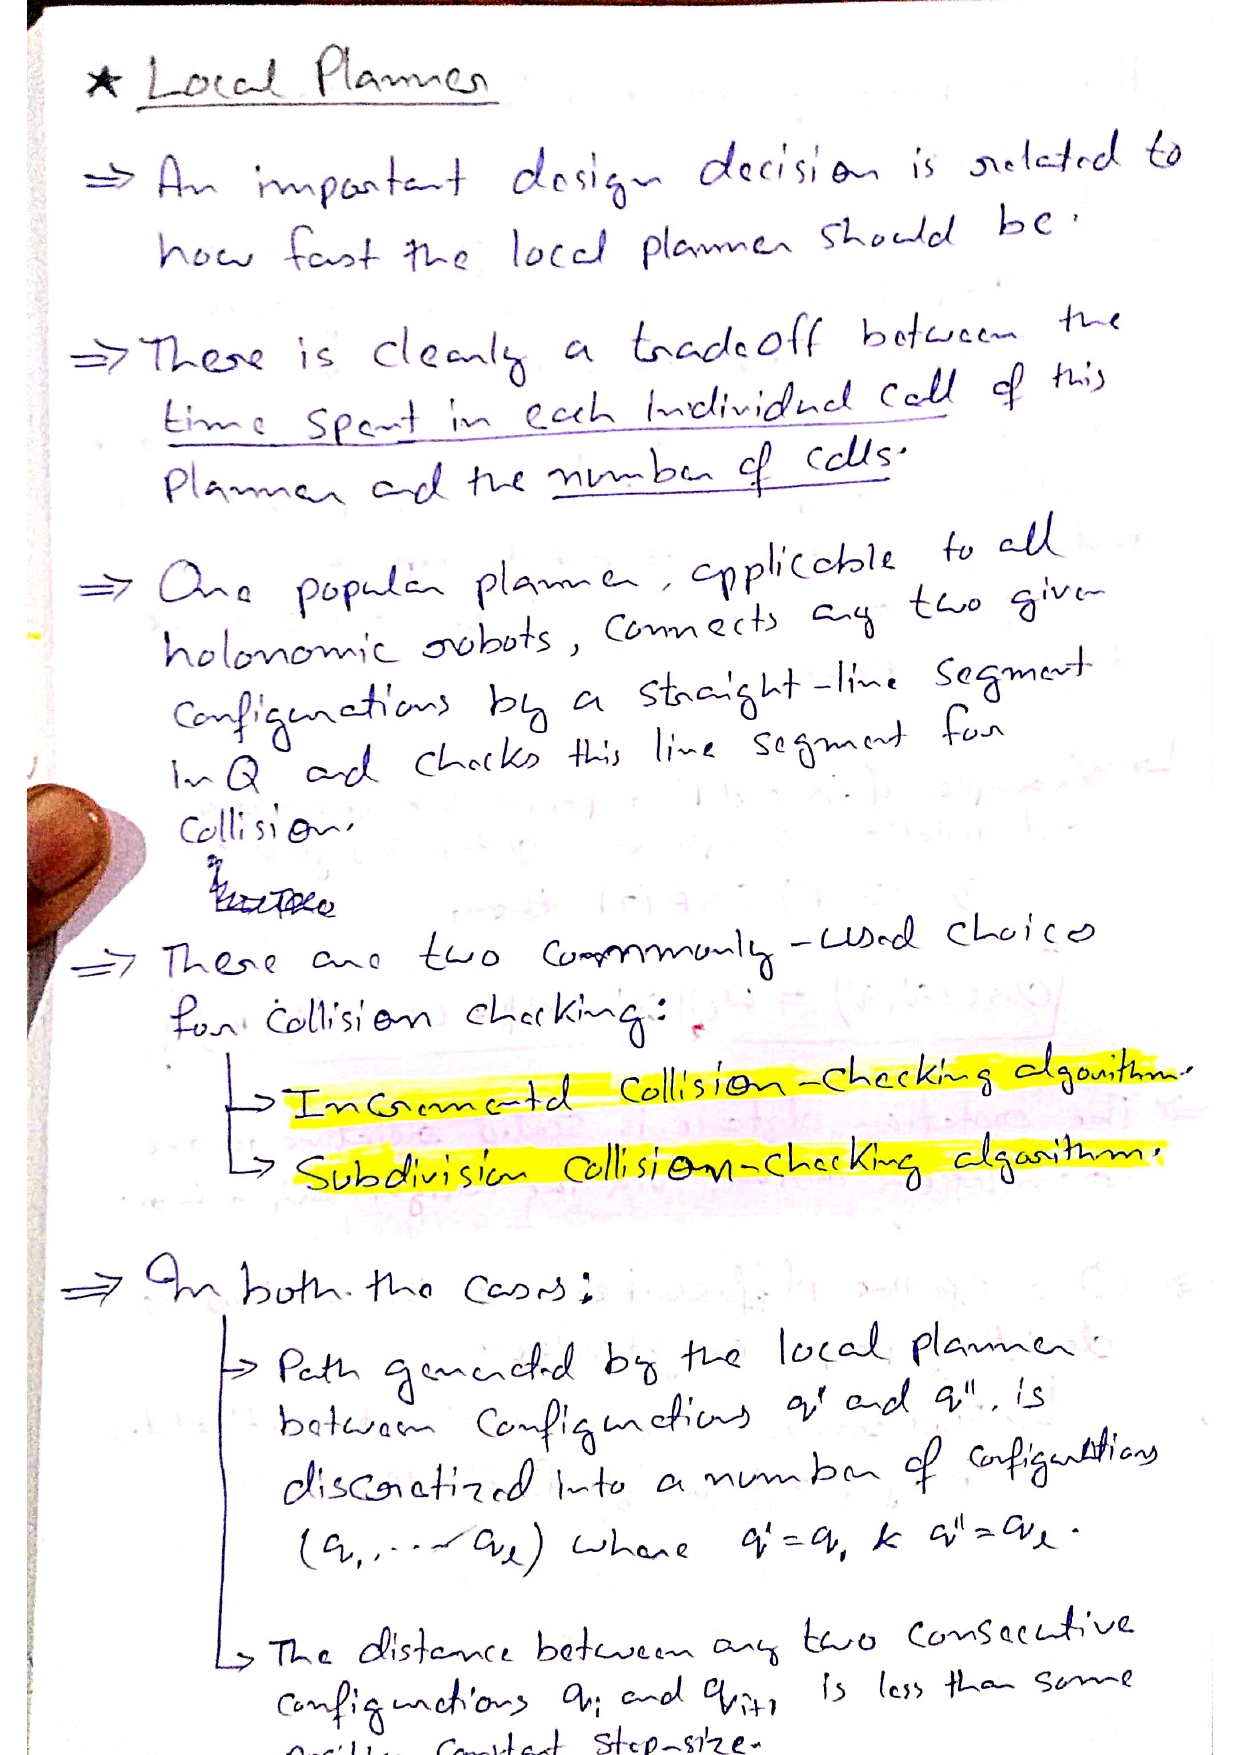 ★ Local Planner
⇒ An important design decision is related to
how fast the local planner should be.
⇒ There is clearly a tradeoff between the
time spent in each individual call of this
planner and the number of calls.
⇒ One popular planner, applicable to all
holonomic robots, connects any two given
configurations by a straight-line segment
in Q and checks this line segment for
collision.
⇒ There are two commonly-used choices
for collision checking:
↳ Incremental collision-checking algorithm.
↳ Subdivision collision-checking algorithm.
⇒ In both the cases:
↳ Path generated by the local planner
between configurations q' and q'', is
discretized into a number of configurations
(q₁,...qₗ) where q'=q₁ & q''=qₗ.
↳ The distance between any two consecutive
configurations qᵢ and qᵢ₊₁ is less than some
constant step-size.